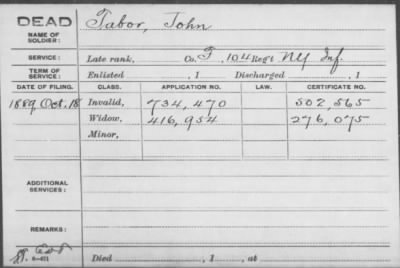 DEAD Tabor, John
NAME OF SOLDIER:
SERVICE: Late rank, Co. F, 104 Regt NY Inf.
TERM OF SERVICE: Enlisted , 1 Discharged , 1
DATE OF FILING. CLASS. APPLICATION NO. LAW. CERTIFICATE NO.
1889 Oct. 18 Invalid, 734,470 502,565
Widow, 416,954 276,075
Minor,
ADDITIONAL SERVICES:
REMARKS:
Died , 1 , at